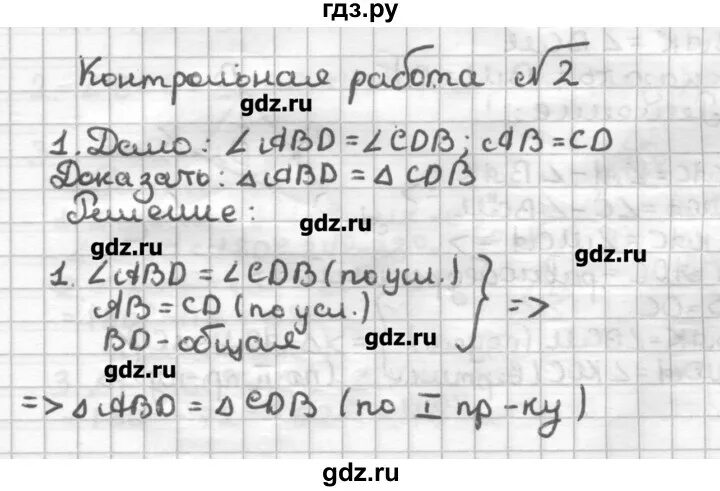 гдз.ру
Контрольная работа №2
gdz.ru
1. Дано: ∠ABD = ∠CDB; AB = CD
Доказать: △ABD = △CDB
Решение:
gdz.ru
gdz.ru
gdz.ru
1. ∠ABD = ∠CDB (по усл.)
AB = CD (по усл.) } =>
BD - общая
gdz.ru
gdz.ru
=> △ABD = △CDB (по I пр-ку)
gdz.ru